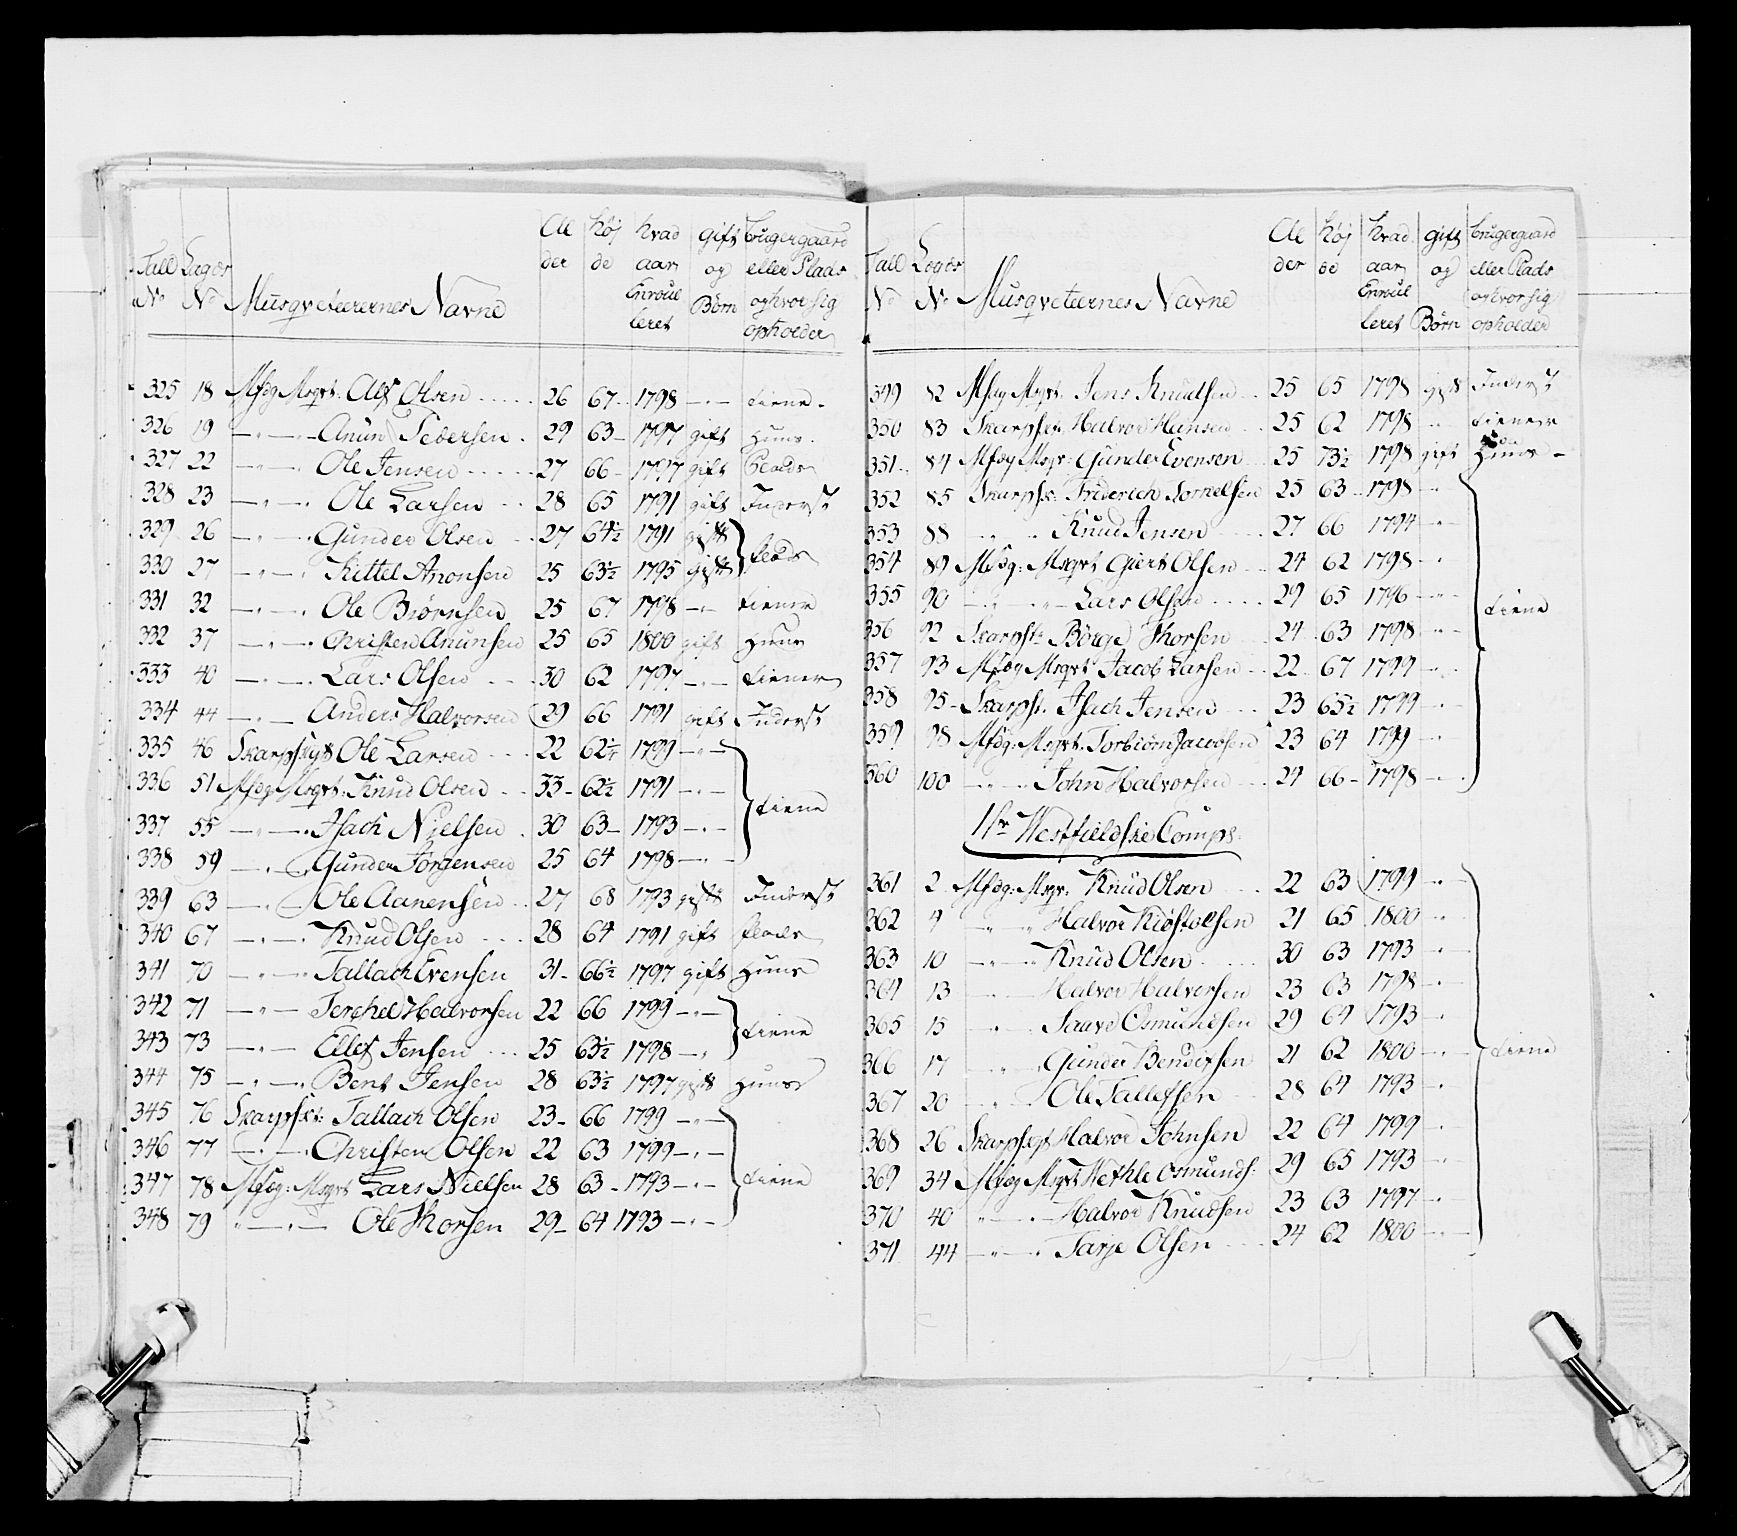 Tall Lagds Musqveteerernes Navne Al høj hvad gift brugergaard
No No der de aar og eller Plads
Enroul Børn og hvor sig
leret opholder
325 18 Mfdg Msqvt: Alf Olsen 26 67 1798 — " — tiene
326 19 — " — Anun Pedersen 29 63 1797 gift Huus
327 22 — " — Ole Jensen 27 66 1797 gift Plads
328 23 — " — Ole Larsen 28 65 1791 gift Inderst
329 26 — " — Gunder Olsen 27 64½ 1791 gift
330 27 — " — Kittel Anonsen 25 63½ 1795 gift } Plads
331 32 — " — Ole Biørnsen 25 67 1798 — " — tiener
332 37 — " — Christen Anunsen 25 65 1800 gift Huus
333 40 — " — Lars Olsen 30 62 1797 — " — tiener
334 44 — " — Anders Halvorsen 29 66 1791 gift Inderst
335 46 Skarpskyt Ole Larsen 22 62¼ 1799 — " —
336 51 Mfdg Msqvt: Knud Olsen 33 62½ 1791 — " —
337 55 — " — Isach Nielsen 30 63 1793 — " — } tiene
338 59 — " — Gunder Jørgensen 25 64 1798 — " —
339 63 — " — Ole Aanensen 27 68 1793 gift Inderst
340 67 — " — Knud Olsen 28 64 1791 gift Plads
341 70 — " — Tallach Evensen 31 66½ 1797 gift Huus
342 71 — " — Terchel Halvorsen 22 66 1799 — " —
343 73 — " — Ellef Jensen 25 63½ 1798 — " } tiene
344 75 — " — Bent Jensen 28 63½ 1797 gift Huus
345 76 Skarpsk: Tallach Olsen 23 66 1799 — " —
346 77 — " — Christen Olsen 22 63 1799 — " —
347 78 Mfdg: Msqvt Lars Nielsen 28 63 1793 — " — } tiene
348 79 " — " — Ole Thorsen 29 64 1793 — " —
Tall Lagds Musqveteernes Navne Al høj hvad gift brugergaard
No No der de aar og eller Plads
Enroul og hvor sig
leret Børn opholder
349 82 Mfdg Msqvt: Jens Knudsen 25 65 1798 gift Inderst
350 83 Skarpskyt Halvor Hansen 25 62 1798 " tiener
351 84 Mfdg Msqv: Gunder Evensen 25 73½ 1798 gift Huus
352 85 Skarpsk: Friderich Tornelsen 25 63 1798 — "
353 88 " " Knud Jensen 27 66 1794 — "
354 89 Mfdg: Msqvt Giert Olsen 24 62 1798 "
355 90 — " — Lars Olsen 29 65 1796 "
356 92 Skarpsk: Børge Thorsen 24 63 1798 " } tiene
357 93 Mfdg Msqvt Jacob Larsen 22 67 1799 "
358 95 Skarpsk: Isach Jensen 23 65½ 1799 "
359 98 Mfdg: Msqvt: Torbiørn Jacobsen 23 64 1799 "
360 100 — " — John Halvorsen 24 66 1798 "
1ste Westfieldske Comps:
361 2 Mfdg: Msqv: Knud Olsen 22 63 1799 — "
362 4 " " Halvor Kiøstolsen 21 65 1800 "
363 10 — " — Knud Olsen 30 63 1793 "
364 13 — " — Halvor Halvorsen 23 63 1798 "
365 15 " Saave Osmundsen 29 64 1793 "
366 17 — " — Gunder Bendixsen 21 62 1800 " } tiene
367 20 " Ole Tallefsen 28 64 1793 "
368 26 Skarpskyt Halvor Johnsen 22 64 1799 "
369 34 Mfdg Msqvt Wethle Osmunds: 29 65 1793 "
370 40 " — " — Halvor Knudsen 23 63 1797 "
371 44 — " — Tarje Olsen 24 62 1800 "